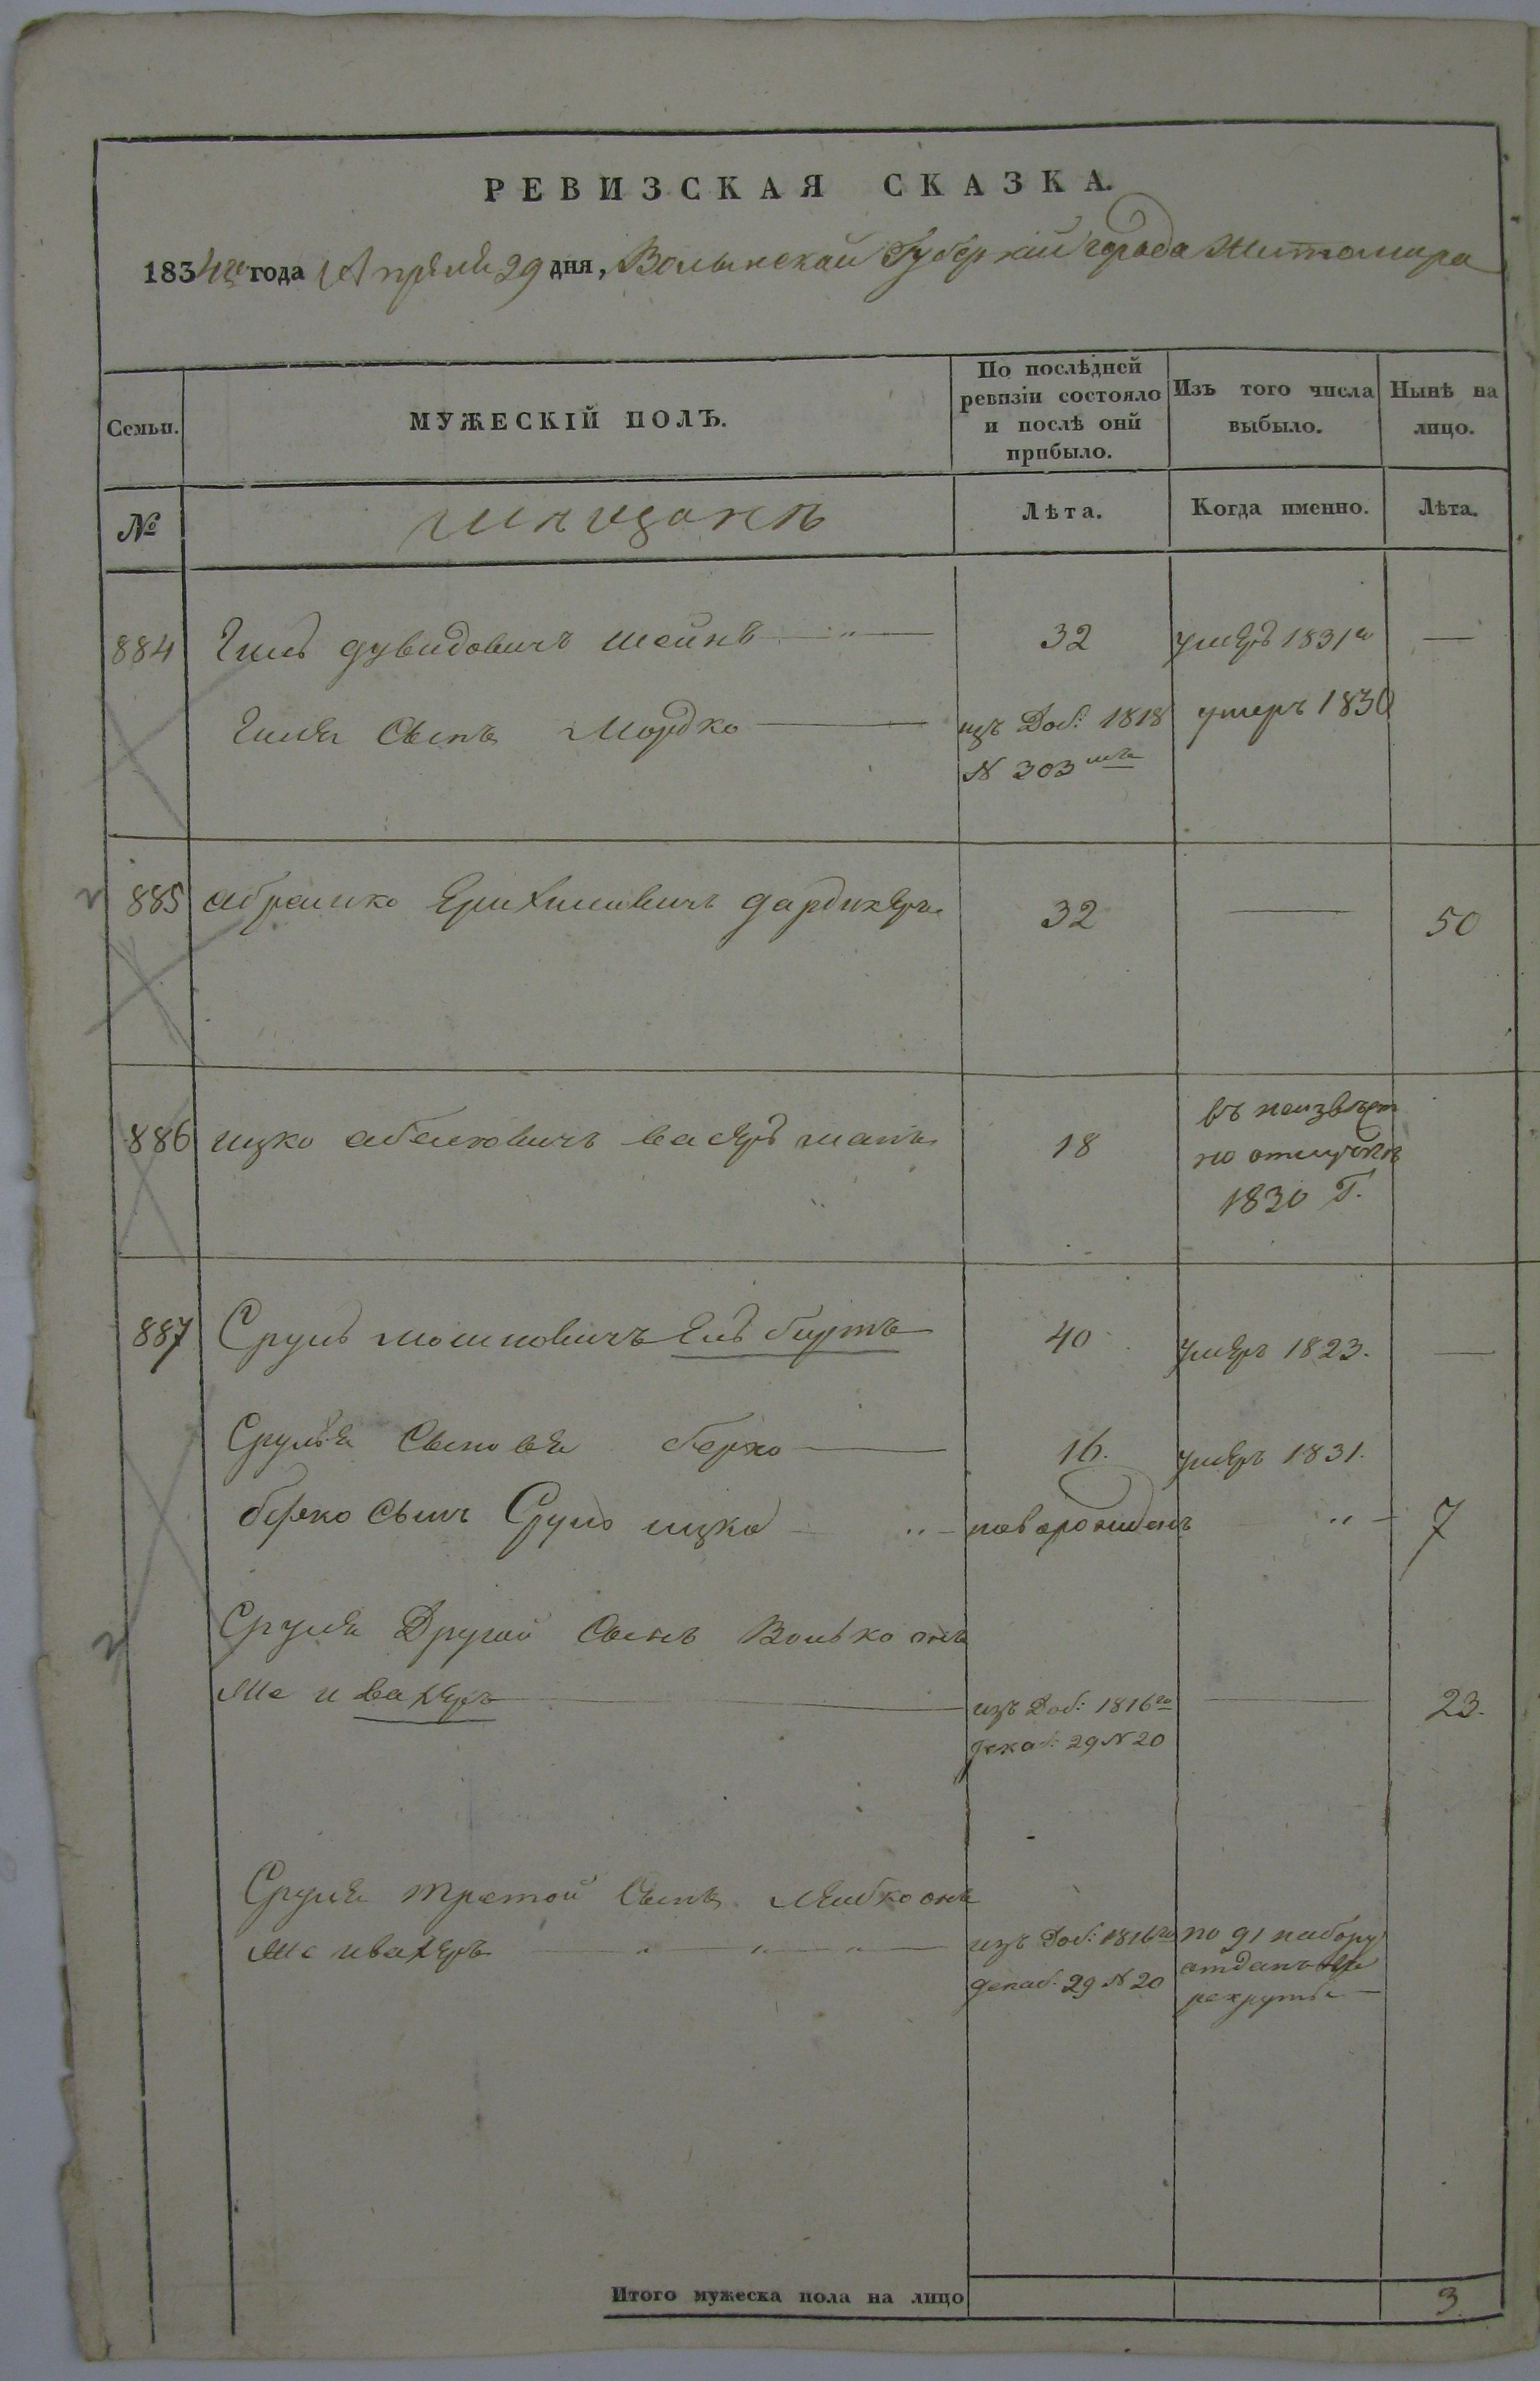 РЕВИЗСКАЯ СКАЗКА.
1834го года Апреля 29 дня, Волынской Губернии города Житомира
Семьи.
МУЖЕСКІЙ ПОЛЪ.
По послѣдней ревизіи состояло и послѣ оній прибыло.
Изъ того числа выбыло.
Нынѣ на лицо.
№
мещанъ
Лѣта.
Когда именно.
Лѣта.
884 Гиль дувидовичъ Шейнъ 32 умеръ 1831го —
Гиля Сынъ Мордко изъ Доб: 1818 умеръ 1830
N 303
885 абрашко дардикеръ 32 — 50
886 ицко васерманъ 18 въ неизвѣст
но отлучкѣ
1830 Г.
887 Сруль мошковичъ 40 умеръ 1823. —
Сруля Сыновья берко 16. умеръ 1831.
берко Сынъ Сруль ицко новорожденъ " 7
Сруля Другой Сынъ Волько онъ
же и вахеръ изъ Доб: 1816го — 23.
декаб: 29 N 20
Сруля третой Сынъ Лейбко онъ
же и вахеръ изъ Доб: 1816го по 91 набору
декаб. 29 N 20 отданъ
рекруты
Итого мужеска пола на лицо 3